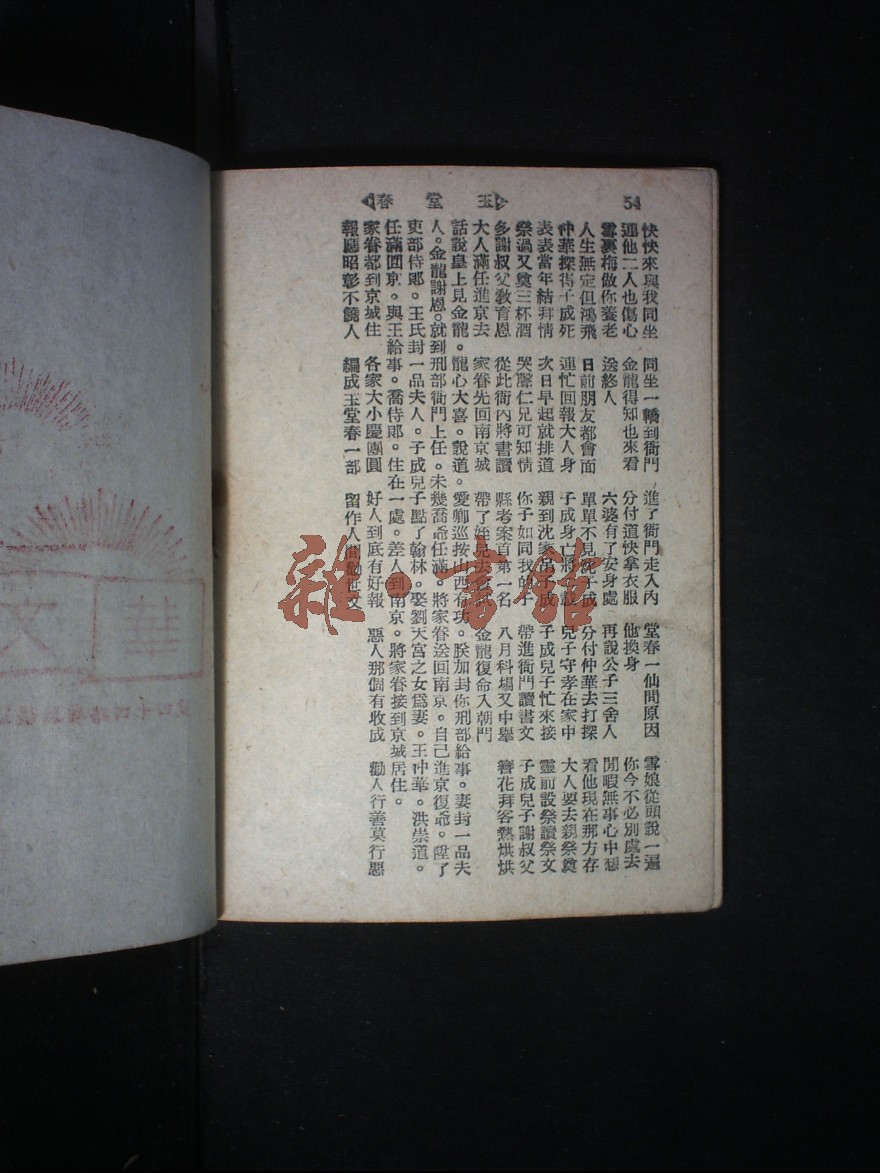 54
玉堂春
快快來與我同坐 同坐一轎到衙門 進了衙門走入內 堂春一仙問原因 雪娘從頭說一遍
連他二人也傷心 金龍得知也來看 分付道快拿衣服 他換身 你今不必別處去
雪裏梅做你養老 送終人 六婆有了安身處 再說公子三舍人 閒暇無事心中想
人生無定但鴻飛 日前朋友都會面 單單不見沈子成 分付仲華去打探 看他現在那方存
仲華探得子成死 連忙回報大人身 子成身亡將 兒子守孝在家中 大人要去親祭奠
表表當年結拜情 次日早起就排道 親到沈家 子成 子成兒子忙來接 靈前設祭讀祭文
祭過又奠三杯酒 哭聲仁兄可知情 你子如同我的子 帶進衙門讀書文 子成兒子謝叔父
多謝叔父教育恩 從此衙內將書讀 縣考案首第一名 八月科場又中舉 簪花拜客熱烘烘
大人滿任進京去 家眷先回南京城 帶了姪兒去 金龍復命入朝門
話說皇上見金龍。龍心大喜。說道。愛卿巡按山西有功。朕加封你刑部給事。妻封一品夫
人。金龍謝恩。就到刑部衙門上任。未幾喬爺任滿。將家眷送回南京。自己進京復爺。陞了
吏部侍郎。王氏封一品夫人。子成兒子點了翰林。娶劉天宮之女爲妻。王仲華。洪崇道。
任滿回京。與王給事。喬侍郎。住在一處。差人到南京。將家眷接到京城居住。
家眷都到京城住 各家大小慶團圓 好人到底有好報 惡人那個有收成 勸人行善莫行惡
報應昭彰不饒人 編成玉堂春一部 留作人間勸世文
雜·書館